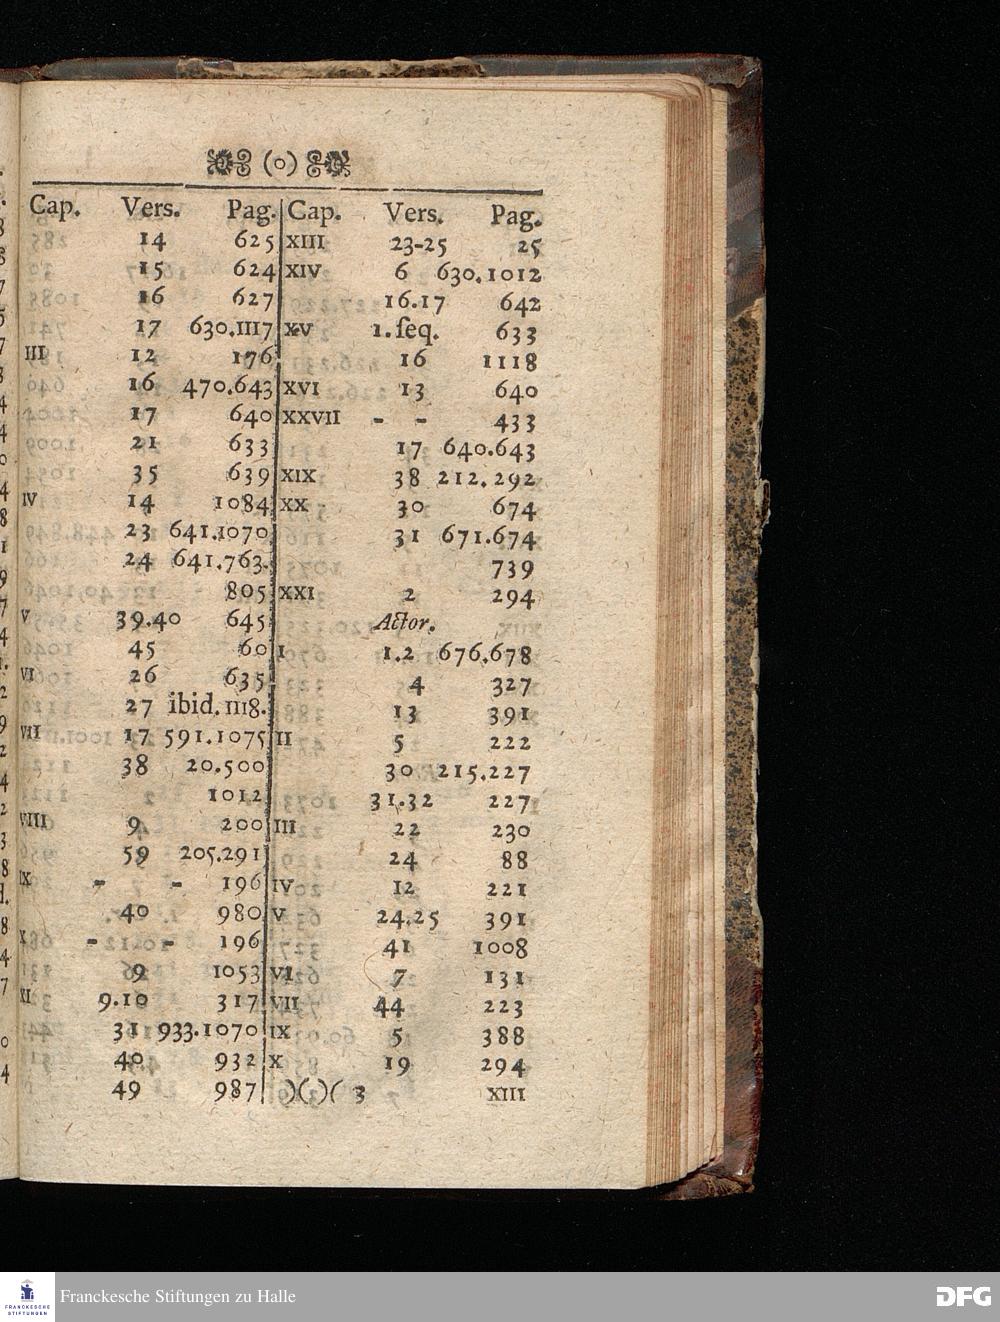 (o)
Cap. Vers. Pag.
14 625
15 624
16 627
17 630.1117
III 12 176
16 470.643
17 640
21 633
35 639
IV 14 1084
23 641.1070
24 641.763.
805
V 39.40 645
45 60
VI 26 635
27 ibid. 1118.
VII 17 591.1075
38 20.500
1012
VIII 9 200
59 205.291
IX - - 196
40 980
X - - 196
9 1053
XI 9.10 317
31 933.1070
40 932
49 987
Cap. Vers. Pag.
XIII 23-25 25
XIV 6 630.1012
16.17 642
XV 1.ſeq. 633
16 1118
XVI 13 640
XXVII - - 433
17 640.643
XIX 38 212.292
XX 30 674
31 671.674
739
XXI 2 294
Actor.
I 1.2 676.678
4 327
13 391
II 5 222
30 215.227
31.32 227
III 22 230
24 88
IV 12 221
V 24.25 391
41 1008
VI 7 131
VII 44 223
IX 5 388
X 19 294
)(.)( 3 XIII
Franckesche Stiftungen zu Halle
FRANCKESCHE
STIFTUNGEN
DFG